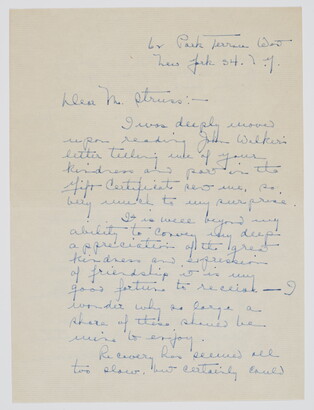 62 Park Terrace West
New York 34. N.Y.
Dear Mr. Struss:—
I was deeply moved
upon reading John Walker's
letter telling me of your
kindness and part in the
Gift Certificate sent me, so
very much to my surprise.
It is well beyond my
ability to convey my deep
appreciation of the great
kindness and expression
of friendship it is my
good fortune to receive — I
wonder why so large a
share of these should be
mine to enjoy.
Recovery has seemed all
too slow. but certainly could